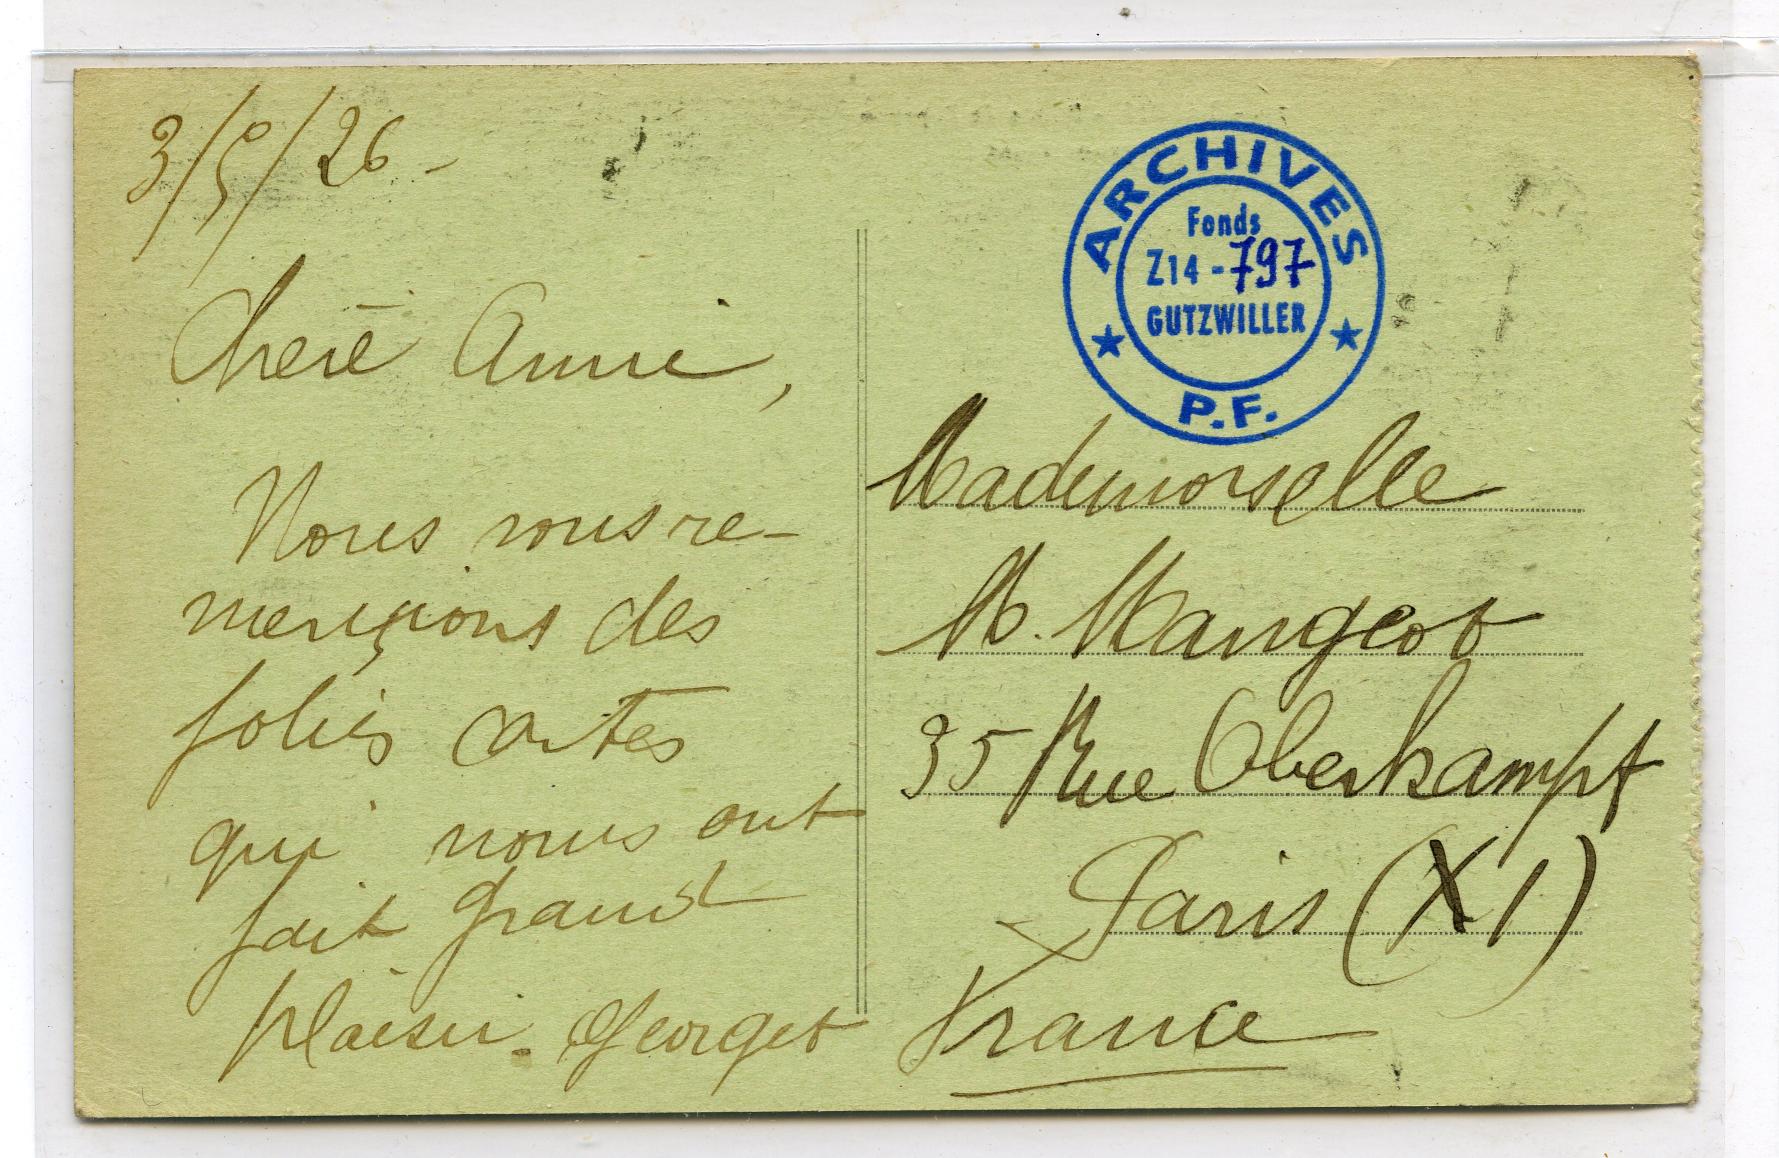 3/5/26 -
Chère Annie,
Nous vous re-
merçions des
jolies cartes
qui nous ont
fait grand
plaisir. Georget
ARCHIVES
Fonds
Z14 - 797
GUTZWILLER
P.F.
Mademoiselle
M. Mangeot
35 Rue Oberkampf
Paris (XI)
France